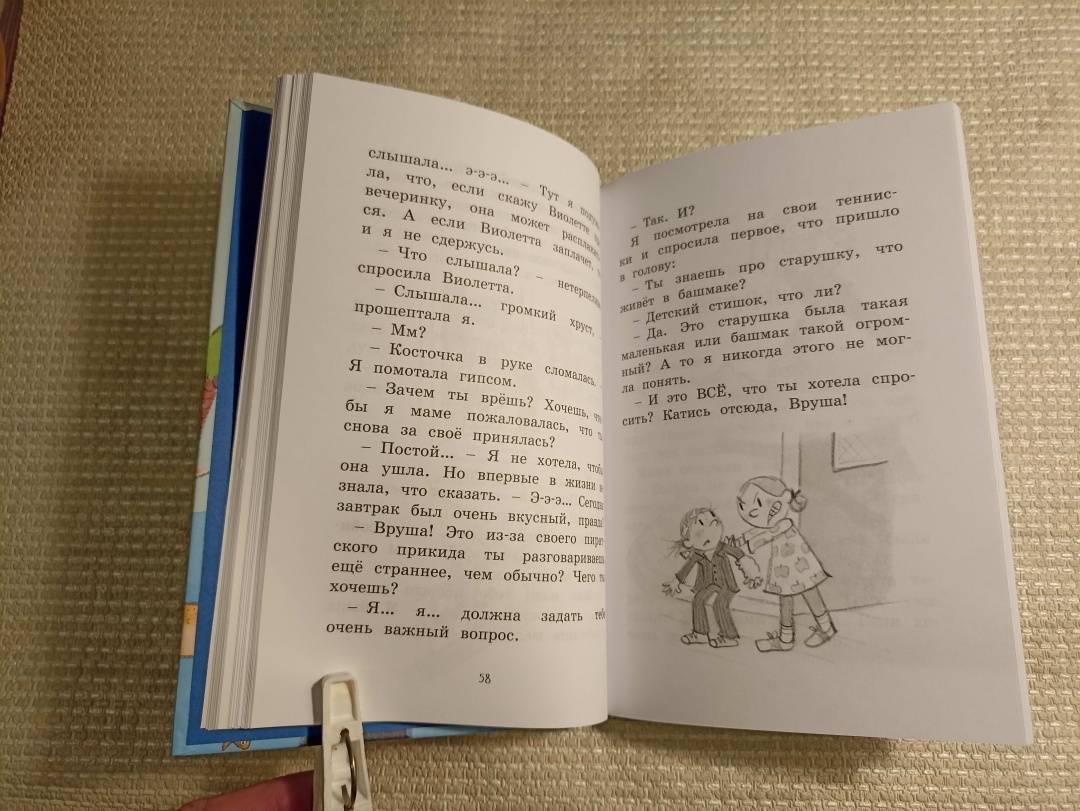 слышала... э-э-э... – Тут я
ла, что, если скажу Виолетте
вечеринку, она может
ся. А если Виолетта заплачет,
и я не сдержусь.
– Что слышала? –
спросила Виолетта.
– Слышала... громкий хруст,
прошептала я.
– Мм?
– Косточка в руке сломалась.
Я помотала гипсом.
– Зачем ты врёшь? Хочешь,
бы я маме пожаловалась, что
снова за своё принялась?
– Постой... – Я не хотела, чтобы
она ушла. Но впервые в жизни
знала, что сказать. – Э-э-э... Сегодня
завтрак был очень вкусный, правда
– Вруша! Это из-за своего пират-
ского прикида ты разговариваешь
ещё страннее, чем обычно? Чего
хочешь?
– Я... я... должна задать тебе
очень важный вопрос.
58
– Так. И?
Я посмотрела на свои теннис-
ки и спросила первое, что пришло
в голову:
– Ты знаешь про старушку, что
живёт в башмаке?
– Детский стишок, что ли?
– Да. Это старушка была такая
маленькая или башмак такой огром-
ный? А то я никогда этого не мог-
ла понять.
– И это ВСЁ, что ты хотела спро-
сить? Катись отсюда, Вруша!